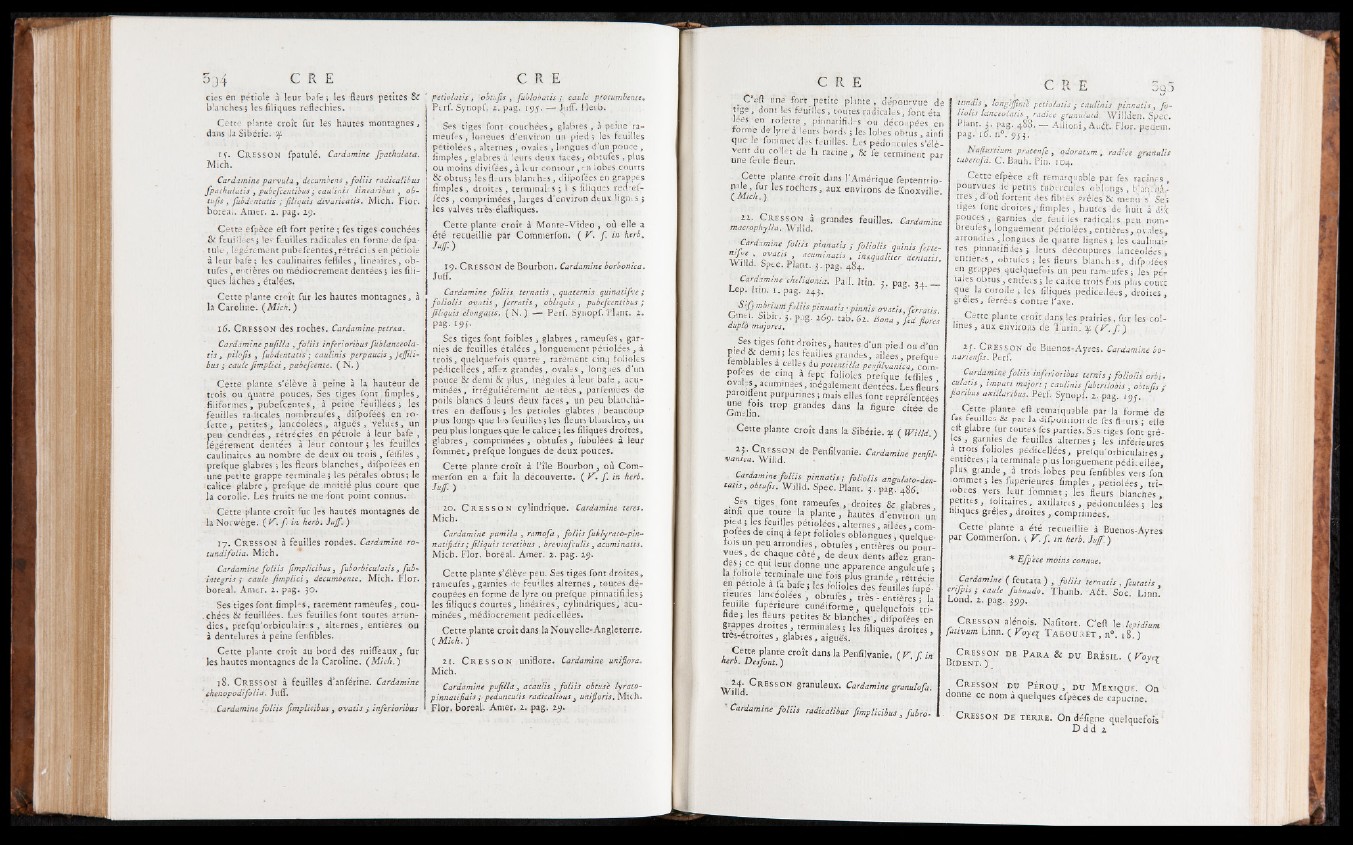 594 C R E
cies en pétiole à leur base; les fleurs petites &
blanches; les siliques réfléchies.
Cette plante croît sur les hautes montagnes,
dans la Sibérie. ♃
15. CRESSON spatulé. Cardamine spathulata.
Mich.
Cardamine parvula, decumbens, foliis radicalibus
spathulatis, pubescentibus; caulinis linearibus, ob-
tusis, subdentatis; siliquis divaricatis. Mich. Flor.
boreal. Amer. 2. pag. 29.
Cette espèce est fort petite; ses tiges couchées
& feuillées; les feuilles radicales en forme de spa-
tule, légérement pubescentes, rétrécies en pétiole
à leur base; les caulinaires sessiles, linéaires, ob-
tuses, entières ou médiocrement dentées; les sili-
ques lâches, étalées.
Cette plante croît sur les hautes montagnes, à
la Caroline. (Mich.)
16. CRESSON des roches. Cardamine petraea.
Cardamine pusilla, foliis inferioribus sublanceola-
tis, pilosis, subdentatis; caulinis perpaucis, sessili-
bus; caule simplici, pubescente. (N.)
Cette plante s'élève à peine à la hauteur de
trois ou quatre pouces. Ses tiges sont simples,
filiformes, pubescentes, à peine feuillées; les
feuilles radicales nombreuses, disposées en ro-
sette, petites, lancéolées, aiguës, velues, un
peu cendrées, rétrécies en pétiole à leur base,
légérement dentées à leur contour; les feuilles
caulinaires au nombre de deux ou trois, sessiles,
presque glabres; les fleurs blanches, disposées en
une petite grappe terminale; les pétales obtus; le
calice glabre, presque de moitié plus court que
la corolle. Les fruits ne me sont point connus.
Cette plante croît sur les hautes montagnes de
la Norwège. (V. s. in herb. Juss.)
17. CRESSON à feuilles rondes. Cardamine ro-
tundifolia. Mich.
Cardamine foliis simplicibus, suborbiculatis, sub-
integris; caule simplici, decumbente. Mich. Flor.
boreal. Amer. 2. pag. 30.
Ses tiges sont simples, rarement rameuses, cou-
chées & feuillées. Les feuilles sont toutes arron-
dies, presqu'orbiculaires, alternes, entières ou
à dentelures à peine sensibles.
Cette plante croît au bord des ruisseaux, sur
les hautes montagnes de la Caroline. (Mich.)
18. CRESSON à feuilles d'ansérine. Cardamine
chenopodifolia. Juss.
Cardamine foliis simplicibus, ovatis; inferioribus
C R E
petiolatis, obtusis, sublobatis; caule procumbente.
Pers. Synops. 2. pag. 195. — Juss. Herb.
Ses tiges sont couchées, glabres, à peine ra-
meuses, longues d'environ un pied; les feuilles
pétiolées, alternes, ovales, longues d'un pouce,
simples, glabres à leurs deux faces, obtuses, plus
ou moins divisées, à leur contour, en lobes courts
& obtus; les fleurs blanches, disposées en grappes
simples, droites, terminales; les siliques redres-
sées, comprimées, larges d'environ deux lignes;
les valves très-élastiques.
Cette plante croît à Monte-Video, où elle a
été recueillie par Commerson. (V. s. in herb.
Juss.)
19. CRESSON de Bourbon. Cardamine borbonica.
Juss.
Cardamine foliis ternatis, quaternis quinatisve;
foliolis ovatis, serratis, obliquis, pubescentibus;
siliquis elongatis. (N.) — Pers. Synops. Plant. 2.
pag. 195.
Ses tiges sont foibles, glabres, rameuses, gar-
nies de feuilles étalées, longuement pétiolées, à
trois, quelquefois quatre, rarement cinq folioles
pédicellées, assez grandes, ovales, longues d'un
pouce & demi & plus, inégales à leur base, acu-
minées, irrégulièrement dentées, parsemées de
poils blancs à leurs deux faces, un peu blanchâ-
tres en dessous; les pétioles glabres, beaucoup
plus longs que les feuilles; les fleurs blanches, un
peu plus longues que le calice; les siliques droites,
glabres, comprimées, obtuses, subulées à leur
sommet, presque longues de deux pouces.
Cette plante croît à l'île Bourbon, où Com-
merson en a fait la découverte. (V. s. in herb.
Juss.)
20. CRESSON cylindrique. Cardamine teres.
Mich.
Cardamine pumila, ramosa, foliis sublyrato-pin-
natifidis; siliquis teretibus, breviusculis, acuminatis.
Mich. Flor. boreal. Amer. 2. pag. 29.
Cette plante s'élève peu. Ses tiges sont droites,
rameuses, garnies de feuilles alternes, toutes dé-
coupées en forme de lyre ou presque pinnatifides;
les siliques courtes, linéaires, cylindriques, acu-
minées, médiocrement pédicellées.
Cette plante croît dans la Nouvelle-Angleterre.
(Mich.)
21. CRESSON uniflore. Cardamine uniflora.
Mich.
Cardamine pusilla, acaulis, foliis obtusè lyrato-
pinnatifidis; pedunculis radicalibus, unifloris. Mich.
Flor. boreal. Amer. 2. pag. 29.
C R E
C'est une fort petite plante, dépourvue de
tige, dont les feuilles, toutes radicales, sont éta-
lées en rosette, pinnatifides ou découpées en
forme de lyre à leurs bords; les lobes obtus, ainsi
que le sommet des feuilles. Les pédoncules s'élè-
vent du collet de la racine, & se terminent par
une seule fleur.
Cette plante croît dans l'Amérique septentrio-
nale, sur les rochers, aux environs de Knoxville.
(Mich.)
22. CRESSON à grandes feuilles. Cardamine
macrophylla. Willd.
Cardamine foliis pinnatis; foliolis quinis septe-
nisve, ovatis, acuminatis, inequaliter dentatis.
Willd. Spec. Plant. 3. pag. 484.
Cardamine chelidonia. Pall. Itin. 3. pag. 34. —
Lep. Itin. 1. pag. 243.
Sisymbrium foliis pinnatis: pinnis ovatis, serratis.
Gmel. Sibir. 3. pag. 269. tab. 62. Bona, sed flores
duplò majores.
Ses tiges sont droites, hautes d'un pied ou d'un
pied & demi; les feuilles grandes, ailées, presque
semblables à celles du potentilla pensylvanica, com-
posées de cinq à sept folioles presque sessiles,
ovales, acuminées, inégalement dentées. Les fleurs
paroissent purpurines; mais elles sont représentées
une fois trop grandes dans la figure citée de
Gmelin.
Cette plante croît dans la Sibérie. ♃ (Willd.)
23. CRESSON de Pensilvanie. Cardamine pensil-
vanica. Willd.
Cardamine foliis pinnatis; foliolis angulato-den-
tatis, obtusis. Willd. Spec. Plant. 3. pag. 486.
Ses tiges sont rameuses, droites & glabres,
ainsi que toute la plante, hautes d'environ un
pied; les feuilles pétiolées, alternes, ailées, com-
posées de cinq à sept folioles oblongues, quelque-
fois un peu arrondies, obtuses, entières ou pour-
vues, de chaque côté, de deux dents assez gran-
des; ce qui leur donne une apparence anguleuse;
la foliole terminale une fois plus grande, rétrécie
en pétiole à sa base; les folioles des feuilles supé-
rieures lancéolées, obtuses, très-entières; la
feuille supérieure cunéiforme, quelquefois tri-
fide; les fleurs petites & blanches, disposées en
grappes droites, terminales; les siliques droites,
très-étroites, glabres, aiguës.
Cette plante croît dans la Pensilvanie. (V. s. in
herb. Desfont.)
24. CRESSON granuleux. Cardamine granulosa.
Willd.
Cardamine foliis radicalibus simplicibus, subro-
C R E 595
tundis, longissimè petiolatis; caulinis pinnatis, fo-
liolis lanceolatis, radice granulatâ. Willden. Spec.
Plant. 3. pag. 488. — Allioni, Auct. Flor. pedem.
pag. 16. n°. 953.
Nasturtium pratense, odoratum, radice granulis
tuberosâ. C. Bauh. Pin. 104.
Cette espèce est remarquable par ses racines,
pourvues de petits tubercules oblongs, blanchâ-
tres, d'où sortent des fibres grêles & menues. Ses
tiges sont droites, simples, hautes de huit à dix
pouces, garnies de feuilles radicales peu nom-
breuses, longuement pétiolées, entières, ovales,
arrondies, longues de quatre lignes; les caulinai-
res pinnatifides; leurs découpures lancéolées,
entières, obtuses; les fleurs blanches, disposées
en grappes quelquefois un peu rameuses; les pé-
tales obtus, entiers; le calice trois fois plus court
que la corolle; les siliques pédicellées, droites,
grêles, serrées contre l'axe.
Cette plante croît dans les prairies, sur les col-
lines, aux environs de Turin. ♃ (V. s.)
25. CRESSON de Buenos-Ayres. Cardamine bo-
nariensis. Pers.
Cardamine foliis inferioribus ternis; foliolis orbi-
culatis, impari majori; caulinis subtrilobis, obtusis;
floribus axillaribus. Pers. Synops. 2. pag. 195.
Cette plante est remarquable par la forme de
ses feuilles & par la disposition de ses fleurs; elle
est glabre sur toutes ses parties. Ses tiges sont grê-
les, garnies de feuilles alternes; les inférieures
à trois folioles pédicellées, presqu'orbiculaires,
entières; la terminale plus longuement pédicellée,
plus grande, à trois lobes peu sensibles vers son
sommet; les supérieures simples, pétiolées, tri-
lobées vers leur sommet; les fleurs blanches,
petites, solitaires, axillaires, pédonculées; les
siliques grêles, droites, comprimées.
Cette plante a été recueillie à Buenos-Ayres
par Commerson. (V. s. in herb. Juss.)
* Espèce moins connue.
Cardamine (scutata), foliis ternatis, scutatis,
crispis; caule subnudo. Thunb. Act. Soc. Linn.
Lond. 2. pag. 399.
CRESSON alénois. Nasitort. C'est le lepidium
sativum Linn. (Voyez TABOURET, n°. 18.)
CRESSON DE PARA & DU BRÉSIL. (Voyez
BIDENT.)
CRESSON DU PÉROU, DU MEXIQUE. On
donne ce nom à quelques espèces de capucine.
CRESSON DE TERRE. On désigne quelquefois
Ddd 2